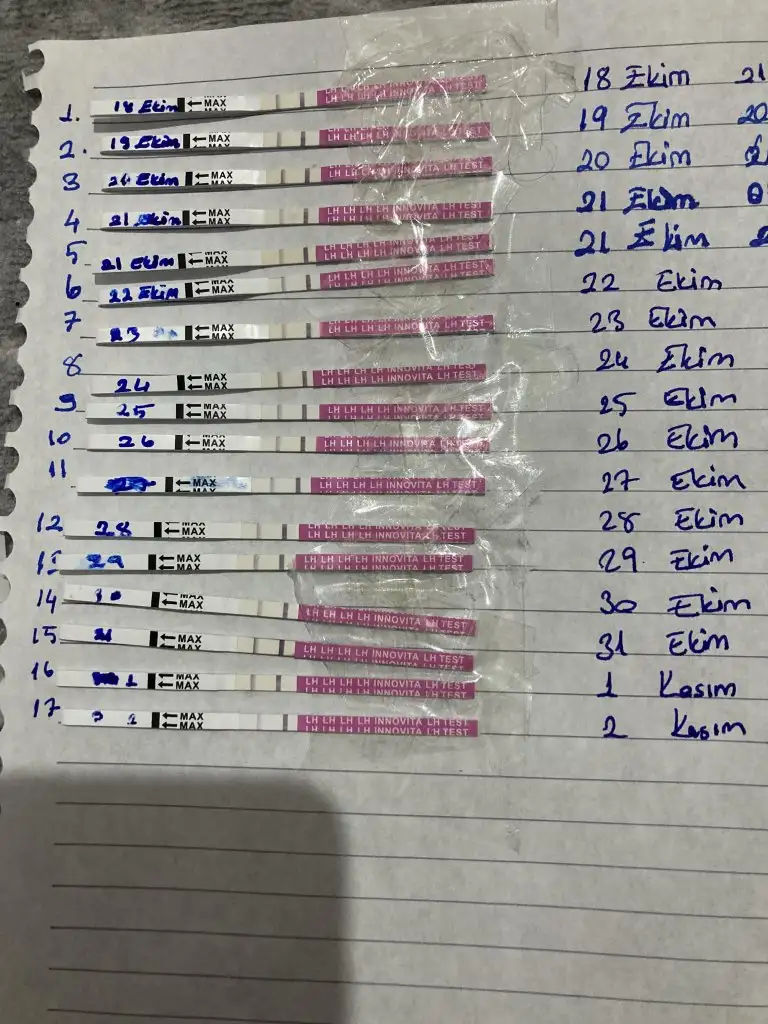 1. 18 Ekim ← MAX MAX LH LH LH LH INNOVITA LH TEST 18 Ekim 21
2. 19 Ekim ← MAX MAX LH LH LH LH INNOVITA LH TEST 19 Ekim 20
3 Ekim ← MAX MAX LH LH LH LH INNOVITA LH TEST 20 Ekim
4 21 Ekim ← MAX MAX LH LH LH LH INNOVITA LH TEST 21 Ekim
5 21 Ekim ← MAX MAX LH LH LH LH INNOVITA LH TEST 21 Ekim
6 22 Ekim ← MAX MAX LH LH LH LH INNOVITA LH TEST 22 Ekim
7 23 ← MAX MAX LH LH LH LH INNOVITA LH TEST 23 Ekim
8 24 ← MAX MAX LH LH LH LH INNOVITA LH TEST 24 Ekim
9 25 ← MAX MAX LH LH LH LH INNOVITA LH TEST 25 Ekim
10 26 ← MAX MAX LH LH LH LH INNOVITA LH TEST 26 Ekim
11 ← MAX MAX LH LH LH LH INNOVITA LH TEST 27 Ekim
12 28 ← MAX MAX LH LH LH LH INNOVITA LH TEST 28 Ekim
29 ← MAX MAX LH LH LH LH INNOVITA LH TEST 29 Ekim
14 30 ← MAX MAX LH LH LH LH INNOVITA LH TEST 30 Ekim
15 ← MAX MAX LH LH LH LH INNOVITA LH TEST 31 Ekim
16 1 ← MAX MAX LH LH LH LH INNOVITA LH TEST 1 Kasım
17 ← MAX MAX LH LH LH LH INNOVITA LH TEST 2 Kasım